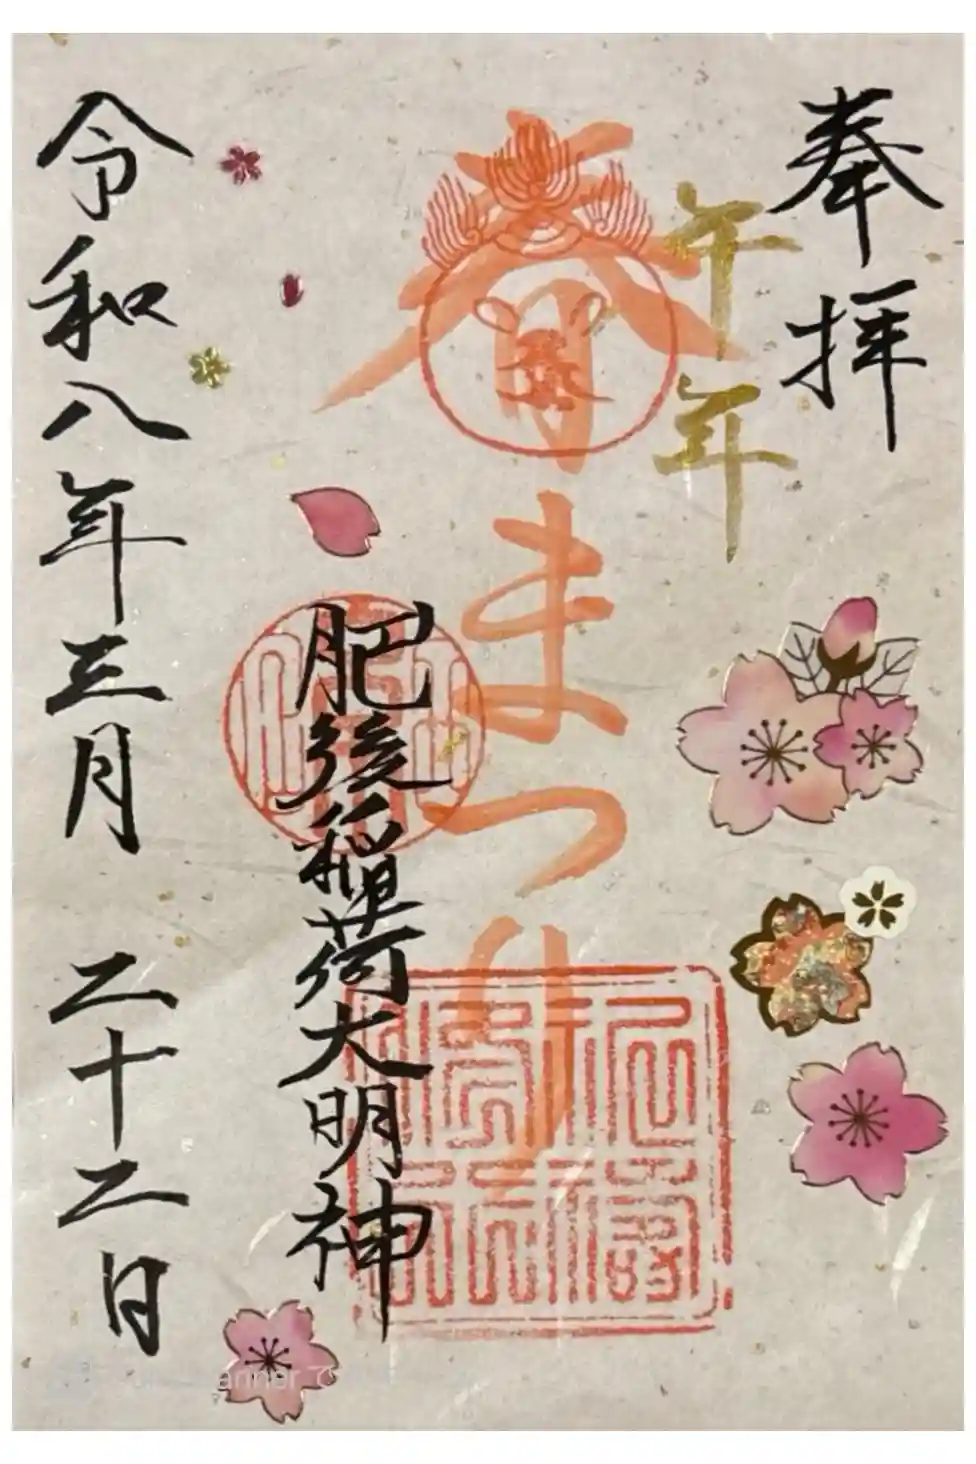 奉拝
午年
春まつり
肥後稲荷大明神
令和八年三月 二十二日
anner で